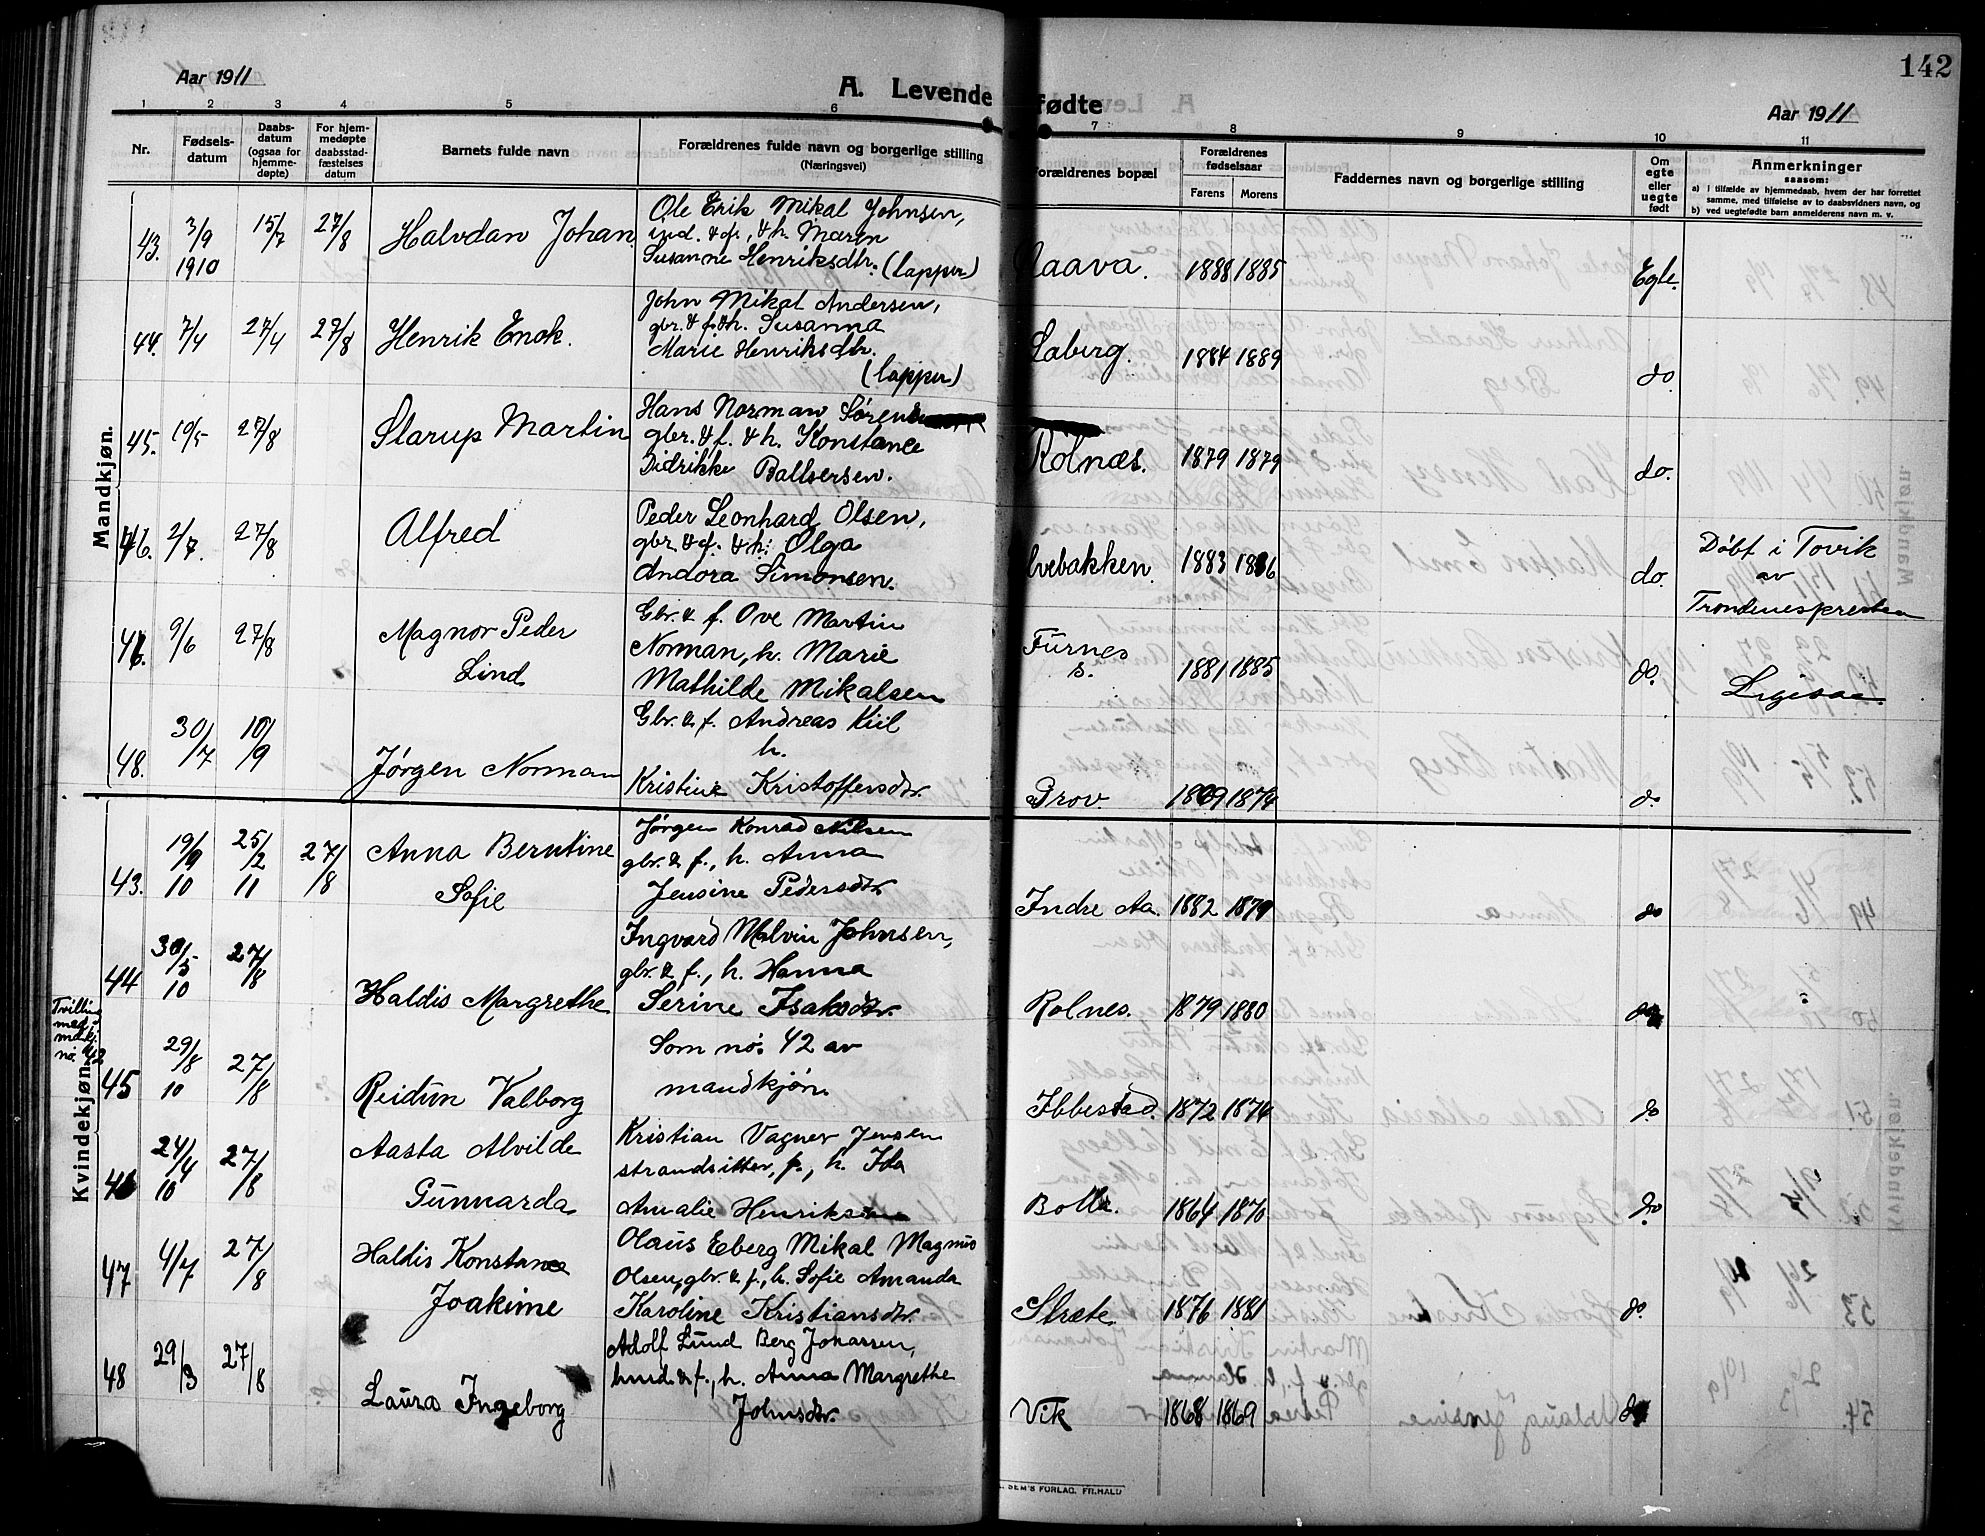 142
Aar 1911
A. Levende fødte
Aar 1911
1 2 3 4 5 6 7 8 9 10 11
Nr.
Fødsels-
datum
Daabs-
datum
(ogsaa for
hjemme-
døpte)
For hjem-
medøpte
daabsstad-
fæstelses
datum
Barnets fulde navn
Forældrenes fulde navn og borgerlige stilling
(Næringsvei)
Forældrenes bopæl
Forældrenes
fødselsaar
Farens Morens
Faddernes navn og borgerlige stilling
Om
egte
eller
uegte
født
Anmerkninger
saasom:
a) i tilfælde av hjemmedaab, hvem der har forrettet
samme, med tilføielse av to daabsvidners navn, og
b) ved uegtefødte barn anmelderens navn m. v.
Mandkjøn.
43. 3/9 1910 15/7 27/8 Halvdan Johan
Ole Erik Mikal Johnsen,
ind. & f., & h. Maren
Susanne Henriksdtr. (lapper)
1888 1885 Egte.
44. 7/4 27/4 27/8 Henrik Enok.
John Mikal Andersen,
gbr. & f. & h. Susanna
Marie Henriksdtr.
(lapper)
Laberg. 1884 1889 do
45. 19/5 27/8 Slarup Martin
Hans Norman
gbr. & f. & h. Konstance
Didrikke Baltsersen.
Rolnæs. 1879 1879 do.
46. 2/7. 27/8 Alfred
Peder Leonhard Olsen,
gbr. & f. & h: Olga
Andora Simonsen.
1883 do.
Døbt i Tovik
av
Trondenespresten
9/6 27/8 Magnor Peder
Lind
Gbr. & f. Ove Martin
Norman, h. Marie
Mathilde Mikalsen
Furnes
s. 1881 1885 do.
Ligesaa.
48. 30/7 10/9 Jørgen Norman
Gbr. & f. Andreas Kiil
h.
Kristine Kristoffersdtr.
Grov. 1874 do
Kvindekjøn.
43. 19/9 10 25/2 11 27/8 Anna Berntine
Sofie
Jørgen Konrad Nilsen
gbr. & f., h. Anna
Jensine Pedersdtr
Indre Aa. 1882 1879 do
44 30/5 10 27/8 Haldis Margrethe
Ingvard Malvin Johnsen,
gbr. & f., h. Hanna
Serine Isaksdtr.
Rolnes. 1879 1880 do
Tvilling
med
mandkj.
no. 42
45 29/8 10 27/8 Reidun Valborg
Som no. 42 av
mandkjøn
Ibbestad. 1872 1874 do
46 24/4 10 27/8 Aasta Alvilde
Gunnarda
Kristian Vagner Jensen
strandsitter, f., h. Ida
Amalie Henriksen
Bolla. 1864 1870 do
47 4/7 27/8 Haldis Konstance
Joakime
Olaus Eberg Mikal Magnus
Olsen, gbr. & f., h. Sofie Amanda
Karoline Kristiansdtr.
Stræte 1876 1881 do.
48 29/3 27/8 Laura Ingeborg
Adolf Lund Berg Jonassen,
& f., h. Anna Margrethe
Johnsdtr.
Vik 1868 1869 do
SEM'S FORLAG. FR.HALD